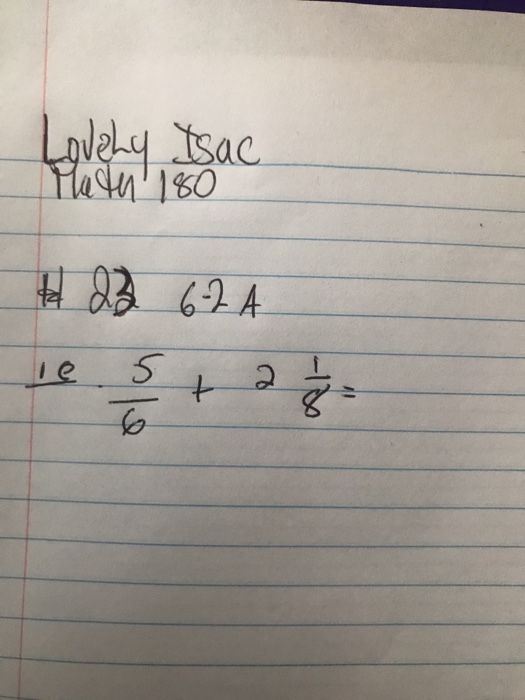 Lovely Isac
Math 180
# 23 6-2 A
1e. 5/6 + 2 1/8 =